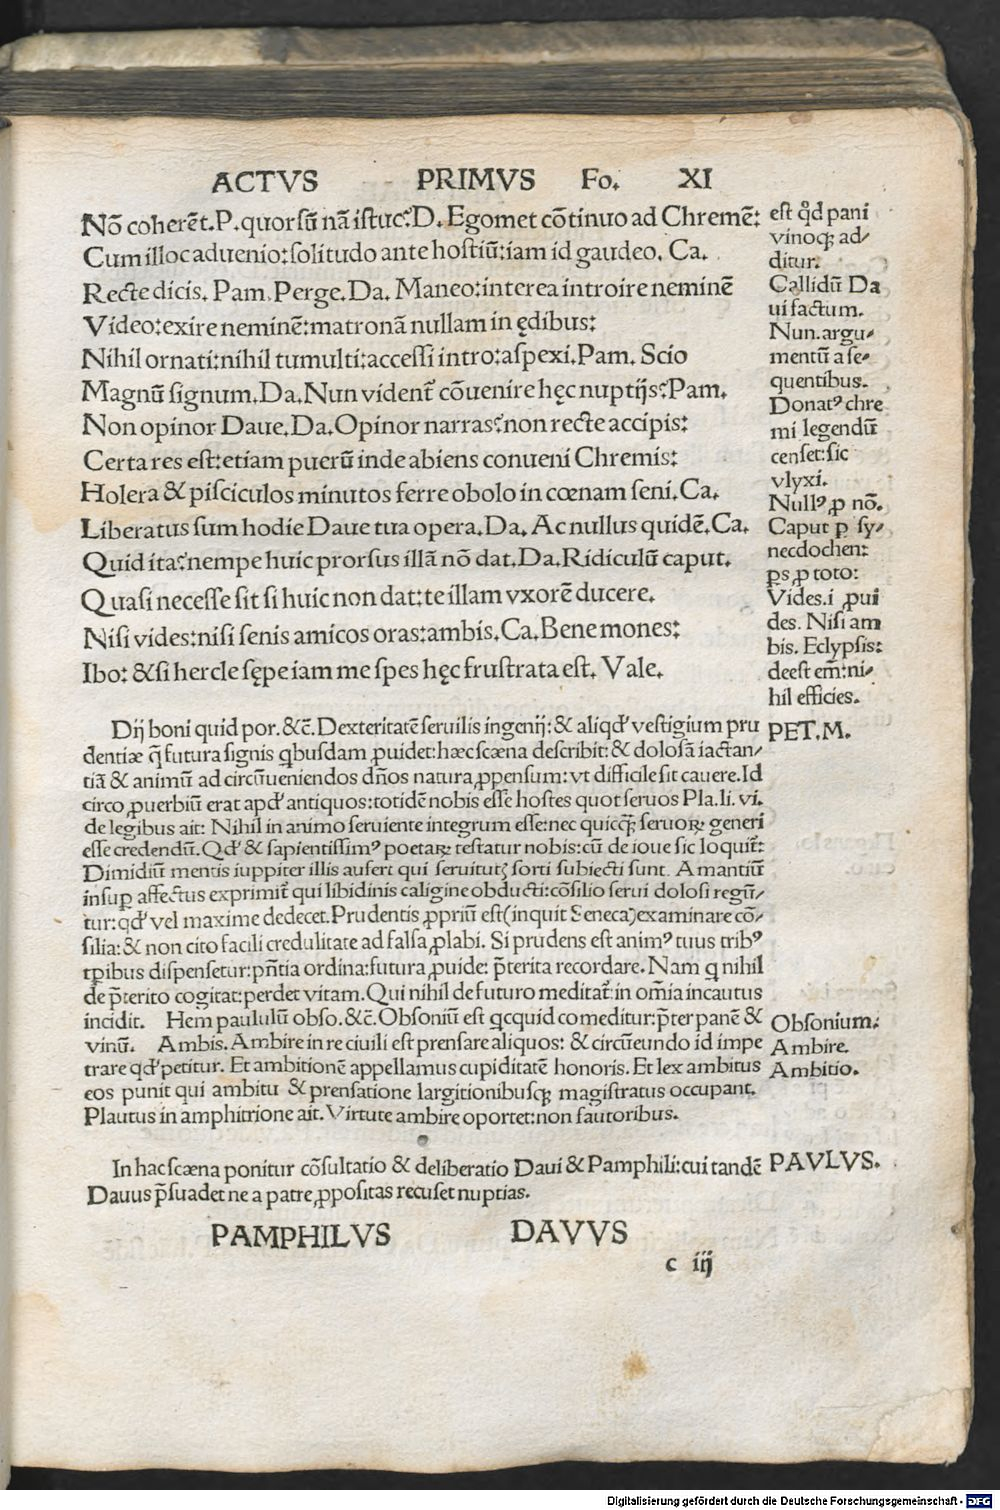 ACTVS PRIMVS Fo. XI
Nō coherēt.P.quorsū nā istuc?D.Egomet cōtinuo ad Chremē:
Cum illoc aduenio:solitudo ante hostiū:iam id gaudeo. Ca.
Recte dicis. Pam.Perge.Da. Maneo:interea introire neminē
Video:exire neminē:matronā nullam in ędibus:
Nihil ornati:nihil tumulti:accessi intro:aspexi.Pam. Scio
Magnū signum.Da.Nun vident̃ cōuenire hęc nuptijs?Pam.
Non opinor Daue.Da.Opinor narras?non recte accipis:
Certa res est:etiam puerū inde abiens conueni Chremis:
Holera & pisciculos minutos ferre obolo in cœnam seni.Ca.
Liberatus sum hodie Daue tua opera.Da.Ac nullus quidē.Ca.
Quid ita?nempe huic prorsus illā nō dat.Da.Ridiculū caput.
Quasi necesse sit si huic non dat:te illam vxorē ducere.
Nisi vides:nisi senis amicos oras:ambis.Ca.Bene mones:
Ibo: &si hercle sępe iam me spes hęc frustrata est. Vale.
est qd̊ pani
vinoqꝫ ad/
ditur.
Callidū Da
ui factum.
Nun.argu/
mentū a se/
quentibus.
Donatꝰ chre
mi legendū
censet:sic
vlyxi.
Nullꝰ ꝓ nō.
Caput p sy/
necdochen:
ps ꝓ toto:
Vides.i ꝓui
des. Nisi am
bis. Eclypsis:
deest em̄:ni/
hil efficies.
Dij boni quid por.&c̄.Dexteritatē seruilis ingenij:& aliqd' vestigium pru
dentiæ q̄ futura signis qbusdam ꝓuidet:hæc scæna describit:& dolosā iactan/
tiā & animū ad circūueniendos dn̄os natura ꝓpensum:vt difficile sit cauere.Id
circo ꝓuerbiū erat apd' antiquos:totidē nobis esse hostes quot seruos Pla.li.vi.
de legibus ait: Nihil in animo seruiente integrum esse:nec quicqꝫ seruoꝝ generi
esse credendū.Qd' & sapientissimꝰ poetaꝝ testatur nobis:cū de ioue sic loquit̃:
Dimidiū mentis iuppiter illis aufert qui seruitutꝫ sorti subiecti sunt. Amantiū
insuꝑ affectus exprimit̃ qui libidinis caligine obducti:cōsilio serui dolosi regū/
tur:qd' vel maxime dedecet.Prudentis ꝓpriū est(inquit Seneca)examinare cō/
silia:& non cito facili credulitate ad falsa ꝓlabi. Si prudens est animꝰ tuus tribꝰ
tꝑibus dispensetur:pn̄tia ordina:futura ꝓuide: p̄terita recordare. Nam q nihil
de p̄terito cogitat:perdet vitam.Qui nihil de futuro meditat̃:in om̄ia incautus
incidit. Hem paululū obso.&c̄.Obsoniū est qcquid comeditur:p̄ter panē &
vinū. Ambis.Ambire in re ciuili est prensare aliquos: & circūeundo id impe
trare qd' petitur. Et ambitionē appellamus cupiditatē honoris. Et lex ambitus
eos punit qui ambitu & prensatione largitionibusqꝫ magistratus occupant.
Plautus in amphitrione ait. Virtute ambire oportet:non fautoribus.
PET.M.
Obsonium.
Ambire.
Ambitio.
In hac scæna ponitur cōsultatio & deliberatio Daui & Pamphili:cui tandē
Dauus p̄suadet ne a patre ꝓpositas recuset nuptias.
PAVLVS.
PAMPHILVS DAVVS
c iij
Digitalisierung gefördert durch die Deutsche Forschungsgemeinschaft - DFG